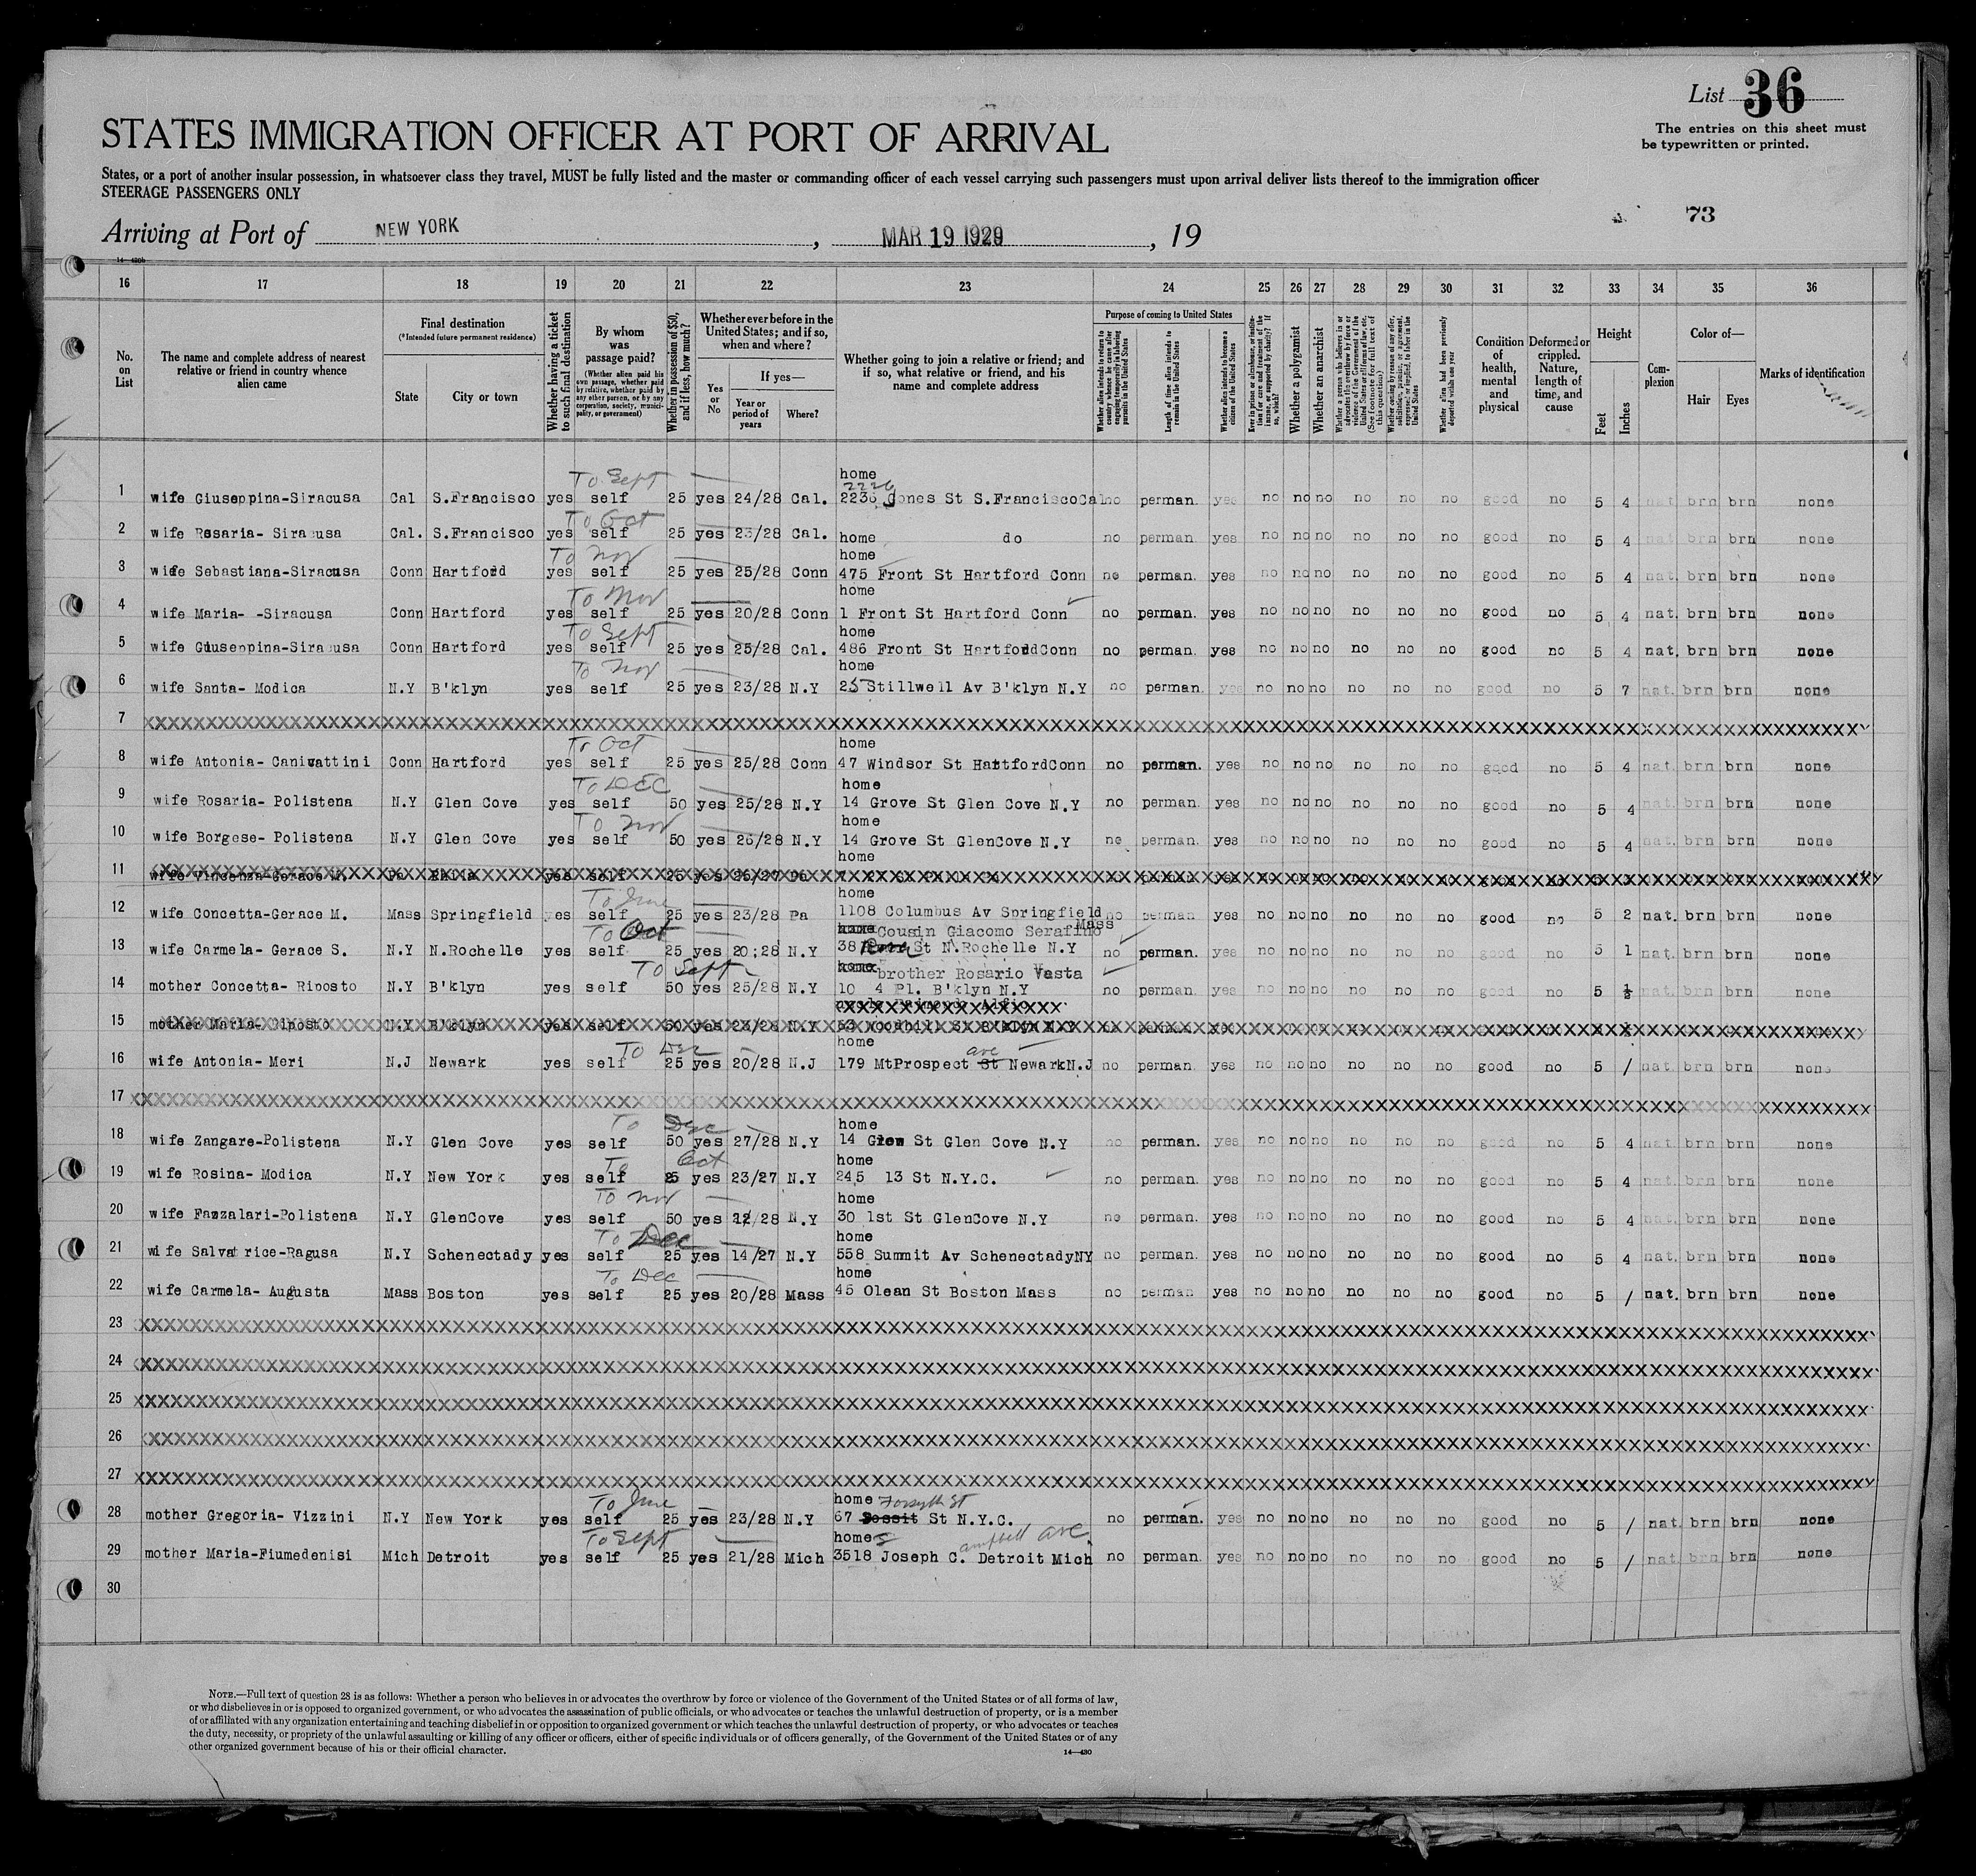 List 36
The entries on this sheet must
be typewritten or printed.
STATES IMMIGRATION OFFICER AT PORT OF ARRIVAL
States, or a port of another insular possession, in whatsoever class they travel, MUST be fully listed and the master or commanding officer of each vessel carrying such passengers must upon arrival deliver lists thereof to the immigration officer
STEERAGE PASSENGERS ONLY
73
Arriving at Port of NEW YORK, MAR 19 1929, 19
16 17 18 19 20 21 22 23 24 25 26 27 28 29 30 31 32 33 34 35 36
No. on List
The name and complete address of nearest relative or friend in country whence alien came
Final destination
(*Intended future permanent residence)
State
City or town
Whether having a ticket to such final destination
By whom was passage paid?
(Whether alien paid his own passage, whether paid by relative, whether paid by any other person, or by any corporation, society, municipality, or government)
Whether in possession of $50, and if less, how much?
Whether ever before in the United States; and if so, when and where?
Yes or No
If yes—
Year or period of years
Where?
Whether going to join a relative or friend; and if so, what relative or friend, and his name and complete address
Purpose of coming to United States
Length of time alien intends to remain in the United States
Whether alien intends to become a citizen of the United States
Whether a polygamist
Whether an anarchist
Condition of health, mental and physical
Deformed or crippled. Nature, length of time, and cause
Height
Feet
Inches
Complexion
Color of—
Hair
Eyes
Marks of identification
To Sept home
1 wife Giuseppina-Siracusa Cal S.Francisco yes self 25 yes 24/28 Cal. 2236 Jones St S.FranciscoCal no perman. yes no no no no no no good no 5 4 nat. brn brn none
To Oct
2 wife Rosaria- Siracusa Cal. S.Francisco yes self 25 yes 23/28 Cal. home do no perman. yes no no no no no no good no 5 4 nat. brn brn none
To Nov home
3 wife Sebastiana-Siracusa Conn Hartford yes self 25 yes 25/28 Conn 475 Front St Hartford Conn no perman. yes no no no no no no good no 5 4 nat. brn brn none
To Nov home
4 wife Maria- -Siracusa Conn Hartford yes self 25 yes 20/28 Conn 1 Front St Hartford Conn no perman. yes no no no no no no good no 5 4 nat. brn brn none
To Sept home
5 wife Giuseppina-Siracusa Conn Hartford yes self 25 yes 25/28 Cal. 486 Front St HartfordConn no perman. yes no no no no no no good no 5 4 nat. brn brn none
To Nov home
6 wife Santa- Modica N.Y B'klyn yes self 25 yes 23/28 N.Y Stillwell Av B'klyn N.Y no perman. yes no no no no no no good no 5 7 nat. brn brn none
7
To Oct home
8 wife Antonia- Canicattini Conn Hartford yes self 25 yes 25/28 Conn 47 Windsor St HartfordConn no perman. yes no no no no no no good no 5 4 nat. brn brn none
To DEC home
9 wife Rosaria- Polistena N.Y Glen Cove yes self 50 yes 25/28 N.Y 14 Grove St Glen Cove N.Y no perman. yes no no no no no no good no 5 4 nat. brn brn none
To Nov home
10 wife Borgese- Polistena N.Y Glen Cove yes self 50 yes 26/28 N.Y 14 Grove St GlenCove N.Y no perman. yes no no no no no no good no 5 4 nat. brn brn none
home
11 wife Vincenza-Gerace M. Pa Phila yes self 25 yes Pa
To June home
12 wife Concetta-Gerace M. Mass Springfield yes self 25 yes 23/28 Pa 1108 Columbus Av Springfield Mass no perman yes no no no no no no good no 5 2 nat. brn brn none
To Oct home Cousin Giacomo Serafino
13 wife Carmela- Gerace S. N.Y N.Rochelle yes self 25 yes 20;28 N.Y 38 St N.Rochelle N.Y no perman. yes no no no no no no good no 5 1 nat. brn brn none
To Sept home brother Rosario Vasta
14 mother Concetta- Riposto N.Y B'klyn yes self 50 yes 25/28 N.Y 10 4 Pl. B'klyn N.Y no perman. yes no no no no no no good no 5 nat. brn brn none
15 mother Maria- Riposto N.Y B'klyn yes self 50 yes 23/28 N.Y 53 Woodhill St B'klyn N.Y
To Dec home ave
16 wife Antonia- Meri N.J Newark yes self 25 yes 20/28 N.J 179 MtProspect St NewarkN.J no perman. yes no no no no no no good no 5 / nat. brn brn none
17
To Dec home
18 wife Zangare-Polistena N.Y Glen Cove yes self 50 yes 27/28 N.Y 14 St Glen Cove N.Y no perman. yes no no no no no no good no 5 4 nat. brn brn none
To Oct home
19 wife Rosina- Modica N.Y New York yes self 25 yes 23/27 N.Y 245 13 St N.Y.C. no perman. yes no no no no no no good no 5 4 nat. brn brn none
To Nov home
20 wife Fazzalari-Polistena N.Y GlenCove yes self 50 yes 12/28 N.Y 30 1st St GlenCove N.Y no perman. yes no no no no no no good no 5 4 nat. brn brn none
To Dec home
21 wife Salvatrice-Ragusa N.Y Schenectady yes self 25 yes 14/27 N.Y 558 Summit Av SchenectadyNY no perman. yes no no no no no no good no 5 4 nat. brn brn none
To Dec home
22 wife Carmela- Augusta Mass Boston yes self 25 yes 20/28 Mass 45 Olean St Boston Mass no perman yes no no no no no no good no 5 / nat. brn brn none
23
24
25
26
27
To June home Forsyth St
28 mother Gregoria- Vizzini N.Y New York yes self 25 yes 23/28 N.Y 67 St N.Y.C. no perman. yes no no no no no no good no 5 / nat. brn brn none
To Sept home ampbell ave
29 mother Maria-Fiumedenisi Mich Detroit yes self 25 yes 21/28 Mich 3518 Joseph C. Detroit Mich no perman. yes no no no no no no good no 5 / nat. brn brn none
30
NOTE.—Full text of question 28 is as follows: Whether a person who believes in or advocates the overthrow by force or violence of the Government of the United States or of all forms of law,
or who disbelieves in or is opposed to organized government, or who advocates the assassination of public officials, or who advocates or teaches the unlawful destruction of property, or is a member
of or affiliated with any organization entertaining and teaching disbelief in or opposition to organized government or which teaches the unlawful destruction of property, or who advocates or teaches
the duty, necessity, or propriety of the unlawful assaulting or killing of any officer or officers, either of specific individuals or of officers generally, of the Government of the United States or of any
other organized government because of his or their official character.
14—430